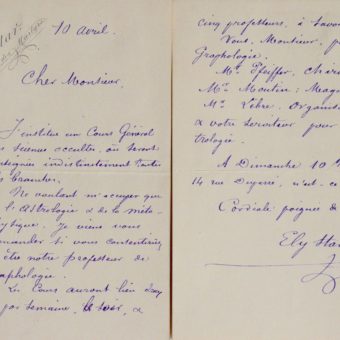 10 avril.
Cher Monsieur,
J'institue un Cours Général
de Science occulte, où seront
enseignées indistinctement toutes
branches.
Ne voulant m'occuper que
de l'Astrologie & de la méta-
physique. Je viens vous
demander si vous consentiriez
à être notre professeur de
graphologie.
Les Cours auront lieu
par semaine, le soir, &
cinq professeurs, à savoir
Vous, Monsieur, po
Graphologie.
Mr Pfeiffer, Chiro
Mr Moutin, Mag
Mr Lèbre. Organis
& votre serviteur pour
trologie.
A Dimanche 10 h
14 rue Duperré, n'est-ce
Cordiale poignée de
Ely Star